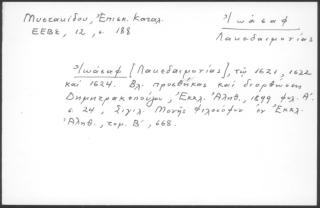 Μυστακίδου, Ἐπισκ. Καταλ.
ΕΕΒΣ, 12, σ. 188
Ἰωάσαφ
Λακεδαιμονίας
Ἰωάσαφ [Λακεδαιμονίας], τῷ 1621, 1622
καὶ 1624. Βλ. προσθήκας καὶ διορθώσεις
Δημητρακοπούλου, Ἐκκλ. Ἀλήθ., 1899 φυλ. Α΄.
σ. 24, Σιγιλ. Μονῆς Φιλοσόφου ἐν Ἐκκλ.
Ἀληθ., τομ. Β΄, 668.